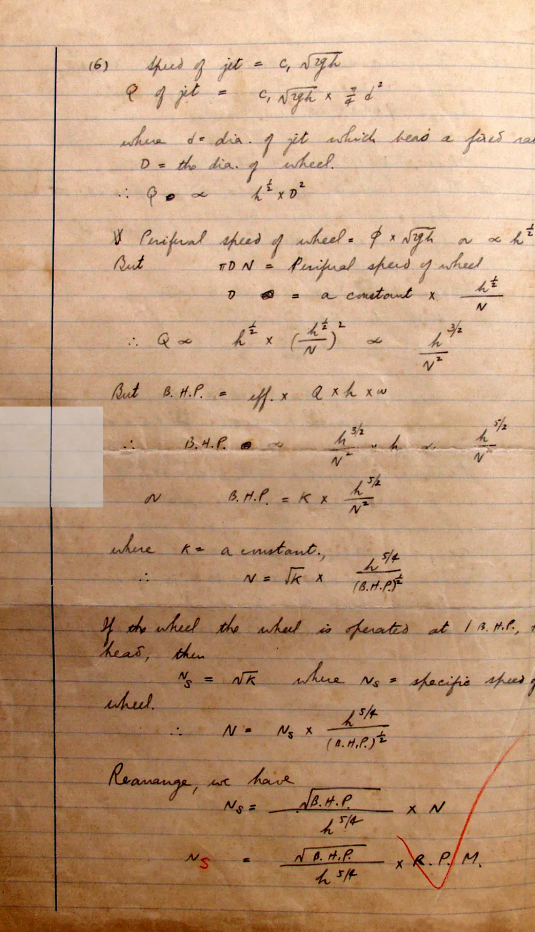 (6) Speed of jet = c, √2gh
Q of jet = c, √2gh × π/4 d²
where d = dia. of jet which bears a fixed
D = the dia. of wheel.
∴ Q ∝ h^½ × D²
Periferal speed of wheel = φ × √2gh or ∝ h^½
But πDN = Periferal speed of wheel
D = a constant × h^½/N
∴ Q ∝ h^½ × (h^½/N)² ∝ h^3/2/N²
But B.H.P. = eff. × Q × h × w
∴ B.H.P. ∝ h^3/2/N² × h ∝ h^5/2/N²
or B.H.P. = K × h^5/2/N²
where K = a constant.,
∴ N = √K × h^5/4/(B.H.P.)^½
If the wheel the wheel is operated at 1 B.H.P.,
head, then
N_S = √K where N_S = specific speed of
wheel.
∴ N = N_S × h^5/4/(B.H.P.)^½
Rearrange, we have
N_S = √B.H.P./h^5/4 × N
N_S = √B.H.P./h^5/4 × R.P.M.